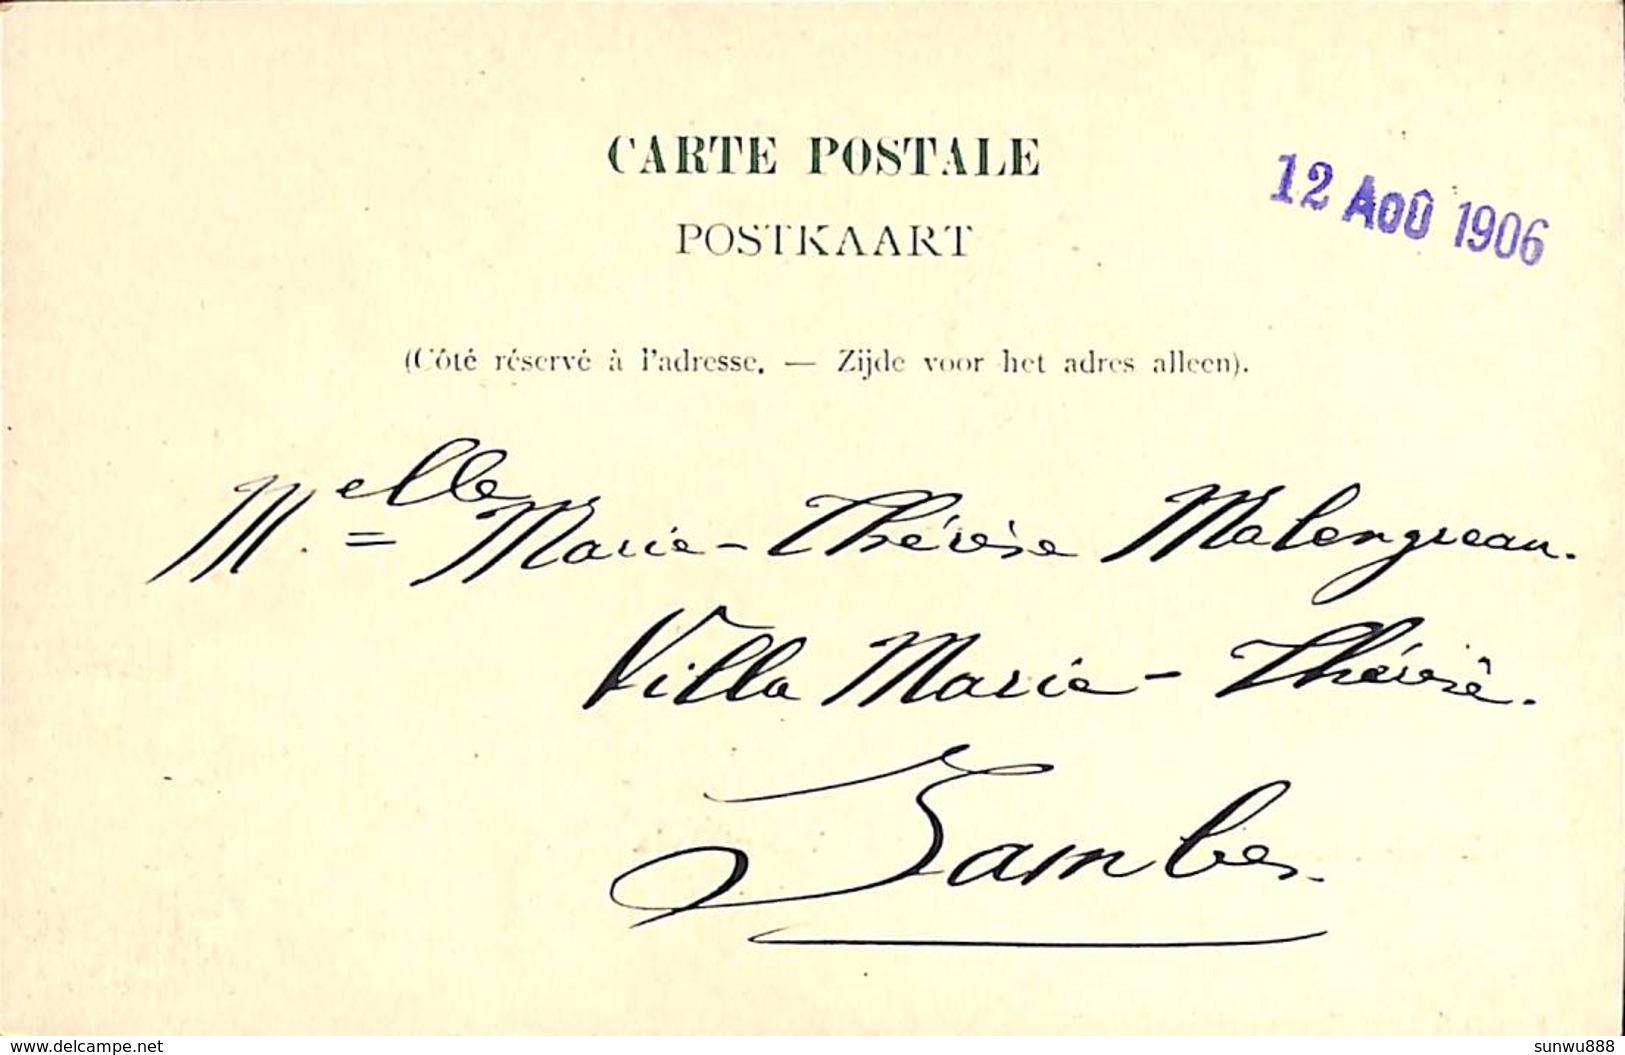 CARTE POSTALE
12 AOÛ 1906
POSTKAART
(Côté réservé à l'adresse. — Zijde voor het adres alleen).
Melle Marie-Thérèse Malengreau.
Villa Marie-Thérèse.
Jambes.
www.delcampe.net
sunwu888